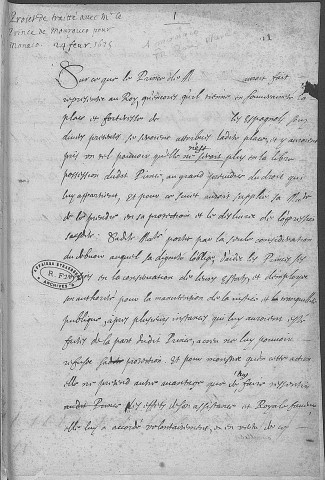 Projet de traitté avec Mr le
Prince de Mourgues pour
Monaco 24 feur. 1635
1
Sur ce que le Prince de M auroit fait
representer au Roy, qu'encores qu'il tienne en souveraineté la
place et forteresse de les Espagnols sous
divers pretextes se seroient attribués ladite place, et y auroient
possession dudit Prince, au grand prejudice du droit qui
luy appartient, et pour ce sujet auroit supplié sa Maté
de le prendre en sa protection et le delivrer de l'oppression
susdite. Sadite Maté portée par la seule consideration
du debuoir auquel sa dignité l'oblige, d'aider les Princes ses
en la conservation de leurs estats, et d'employer
son authorité pour la manutention de la justice et tranquillité
publique, apres plusieurs instances qui luy auroient esté
faites de la part dudit Prince, a creu ne luy pouvoir
refuser sadite protection. Et pour monstrer qu'en cette action
elle ne pretend autre avantage que de faire ressentir
audit Prince les effets de son assistance et Royale faveur
elle luy a accordé volontairement, et en vertu de ce
AFFAIRES ETRANGERES
R. F.
ARCHIVES